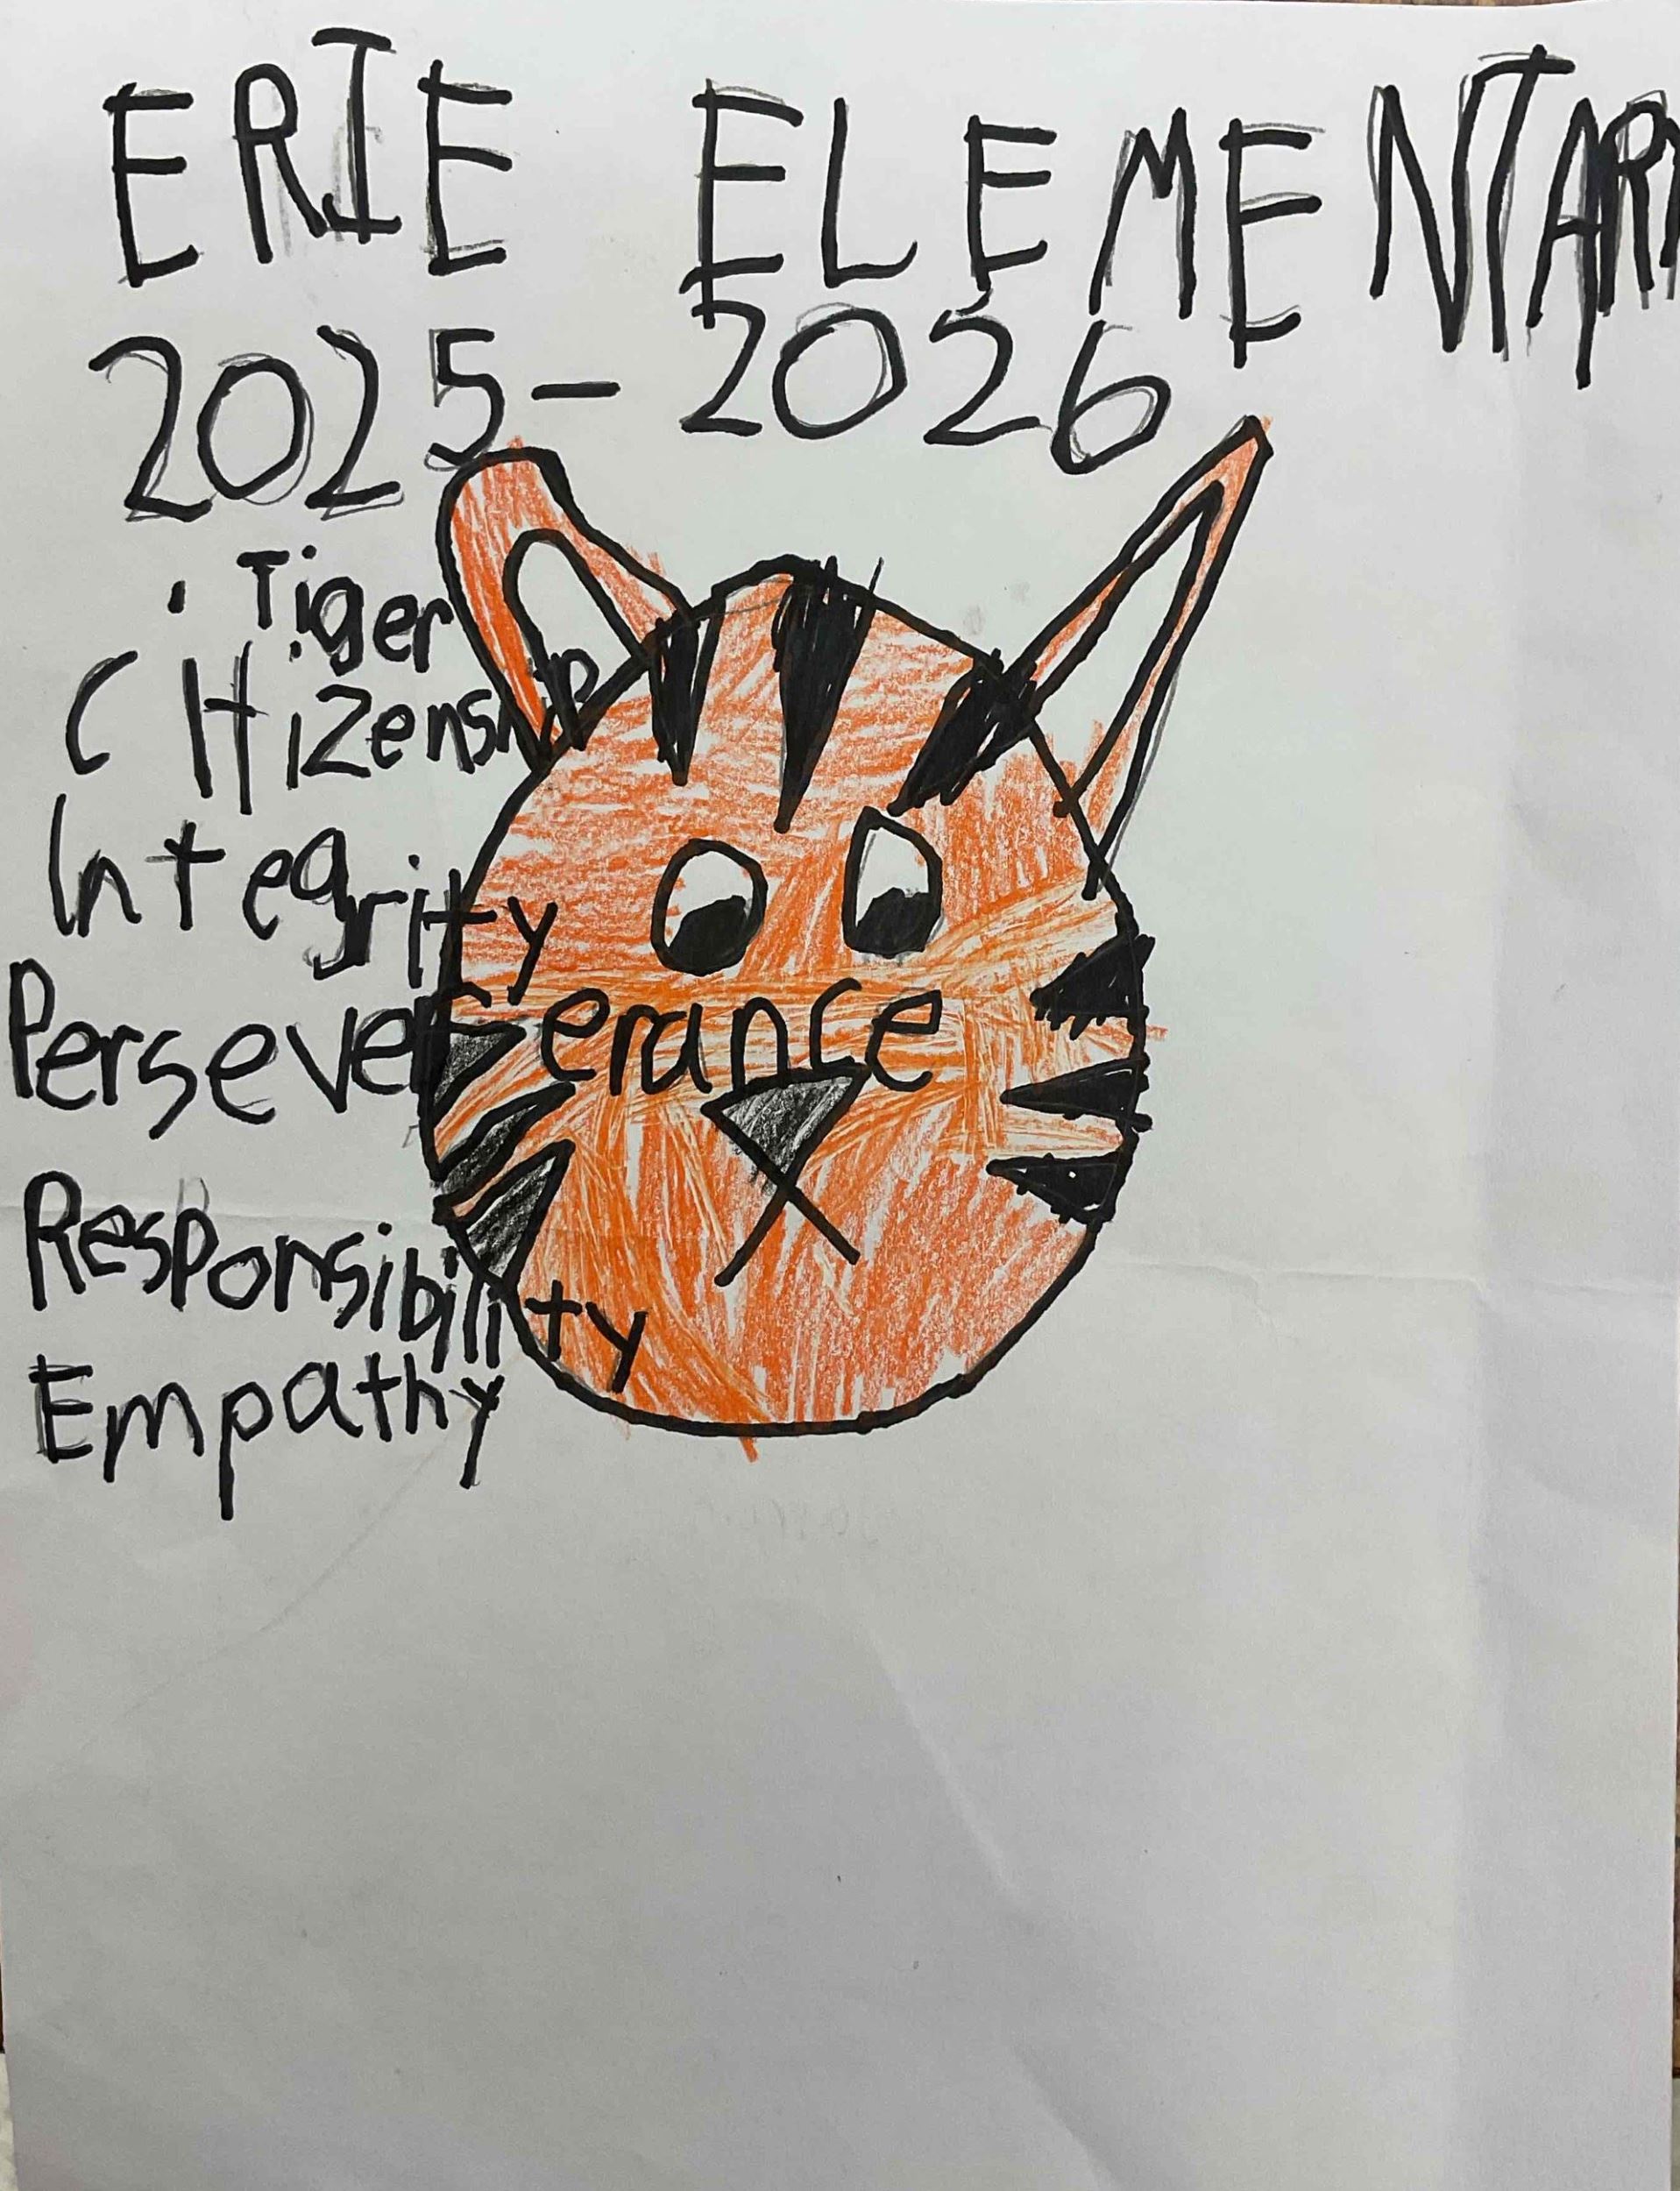 ERIE ELEMENTARY
2025-2026
Tiger
Citizenship
Integrity
Perseverérance
Responsibility
Empathy